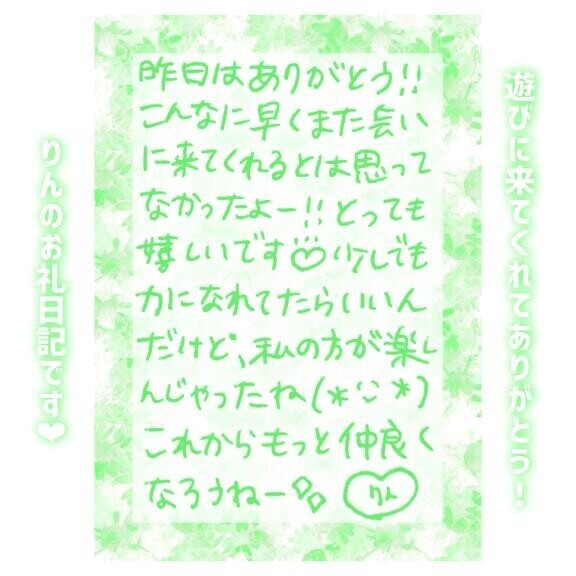 遊びに来てくれてありがとう！
昨日はありがとう!!
こんなに早くまた会い
に来てくれるとは思って
なかったよー!!とっても
嬉しいです♡少しでも
力になれてたらいいん
だけど、私の方が楽し
んじゃったね(*¨*)
これからもっと仲良く
なろうねー
りん
りんのお礼日記です♥